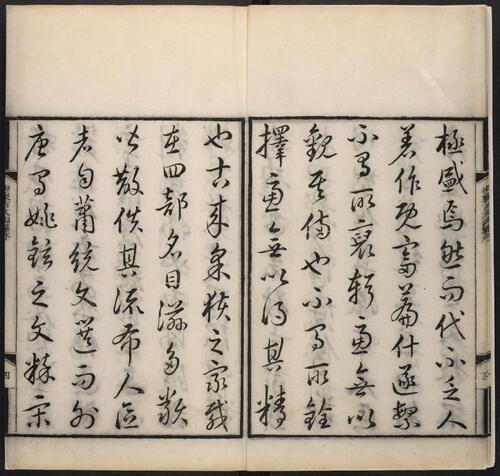 極盛焉然而代不乏人
著作既富篇什遂繁
不有所裒輯慮無以
觀其備也不有所銓
擇慮無以得其精
也古來之家載
在四部名目滋多類
皆散佚其流布人間
者自蕭統文選而外
唐有姚鉉之文粹宋
四